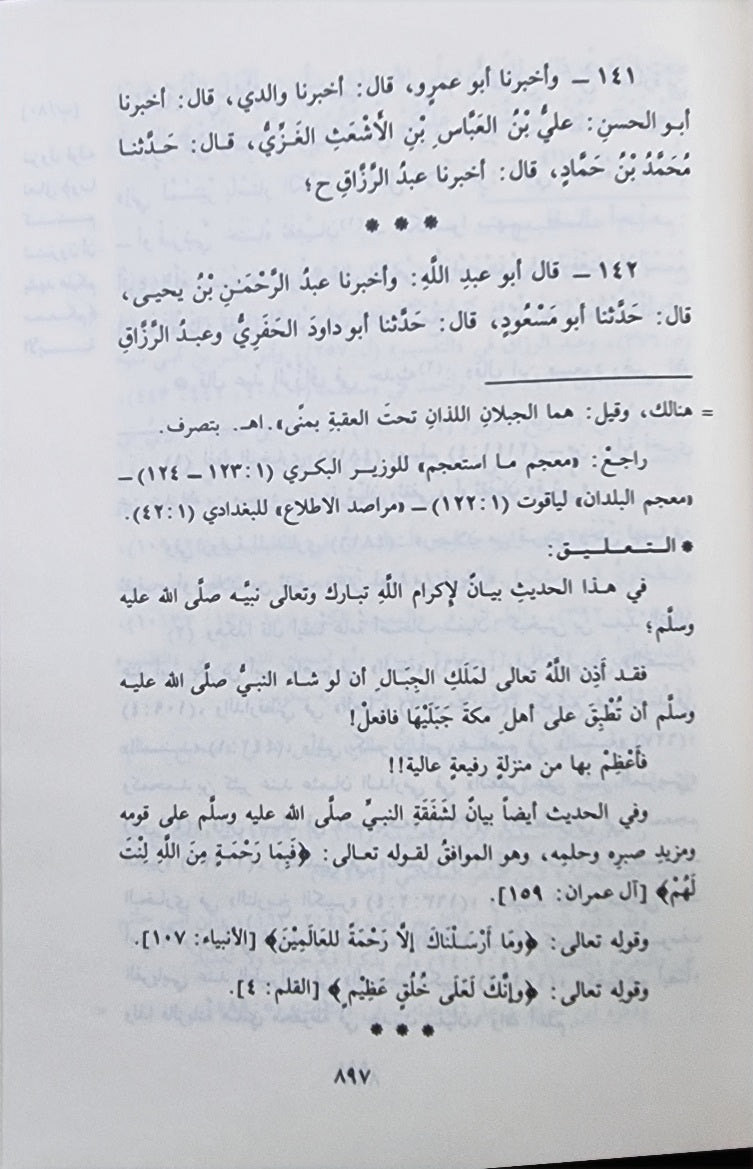 ١٤١ – وأخبرنا أبو عمرٍو، قال: أخبرنا والدي، قال: أخبرنا
أبو الحسنِ: عليُّ بْنُ العَبَّاسِ بْنِ الأَشْعَثِ الغَزِّيُّ، قـال: حَدَّثنـا
مُحَمَّدُ بْنُ حَمَّادٍ، قال: أخبرنا عبدُ الرَّزَّاقِ ح؛
* * *
١٤٢ – قال أبو عبدِ اللَّهِ: وأخبرنا عبدُ الرَّحْمَـٰنِ بْنُ يحيـى،
قال: حَدَّثنا أبو مَسْعُودٍ، قال: حَدَّثنا أبو داودَ الحَفَرِيُّ وعبـدُ الرَّزَّاقِ
= هنالك، وقيل: هما الجبلانِ اللذانِ تحتَ العقبةِ بمنًى». اهـ. بتصرف.
راجـعْ: «معجم مـا استعجم» للوزيـر البكري (١: ١٢٣ – ١٢٤) –
«معجم البلدان» لياقوت (١: ١٢٢) – «مراصد الاطلاع» للبغدادي (١: ٤٢).
* التـعـلـيـق:
في هـذا الحديث بيـانٌ لإكرام اللَّهِ تبـارك وتعالى نبيَّـه صلَّى الله عليه
وسلَّم؛
فقـد أَذِن اللَّهُ تعالى لمَلَكِ الجِبـال أن لو شـاء النبـيُّ صلَّـى الله عليـه
وسلَّم أن تُطْبَقَ على أهلِ مكةَ جَبَلَيْهَا فافعلْ!
فَأَعْظِم بها من منزلةٍ رفيعةٍ عالية!!
وفي الحديث أيضاً بيـانٌ لشَفَقَةِ النبـيِّ صلَّى الله عليه وسلَّم على قومه
ومزيدِ صبرِه وحلمِه، وهو الموافقُ لقـوله تعـالى: ﴿فَبِمَا رَحْمَـةٍ مِنَ اللَّهِ لِنْتَ
لَهُمْ﴾ [آل عمران: ١٥٩].
وقوله تعالى: ﴿وَمَا أَرْسَـلْنَاكَ إِلاَّ رَحْمَةً للعَالَمِيْنَ﴾ [الأنبياء: ١٠٧].
وقوله تعالى: ﴿وَإنَّكَ لَعَلَى خُلُقٍ عَظِيْمٍ﴾ [القلم: ٤].
* * *
٨٩٧